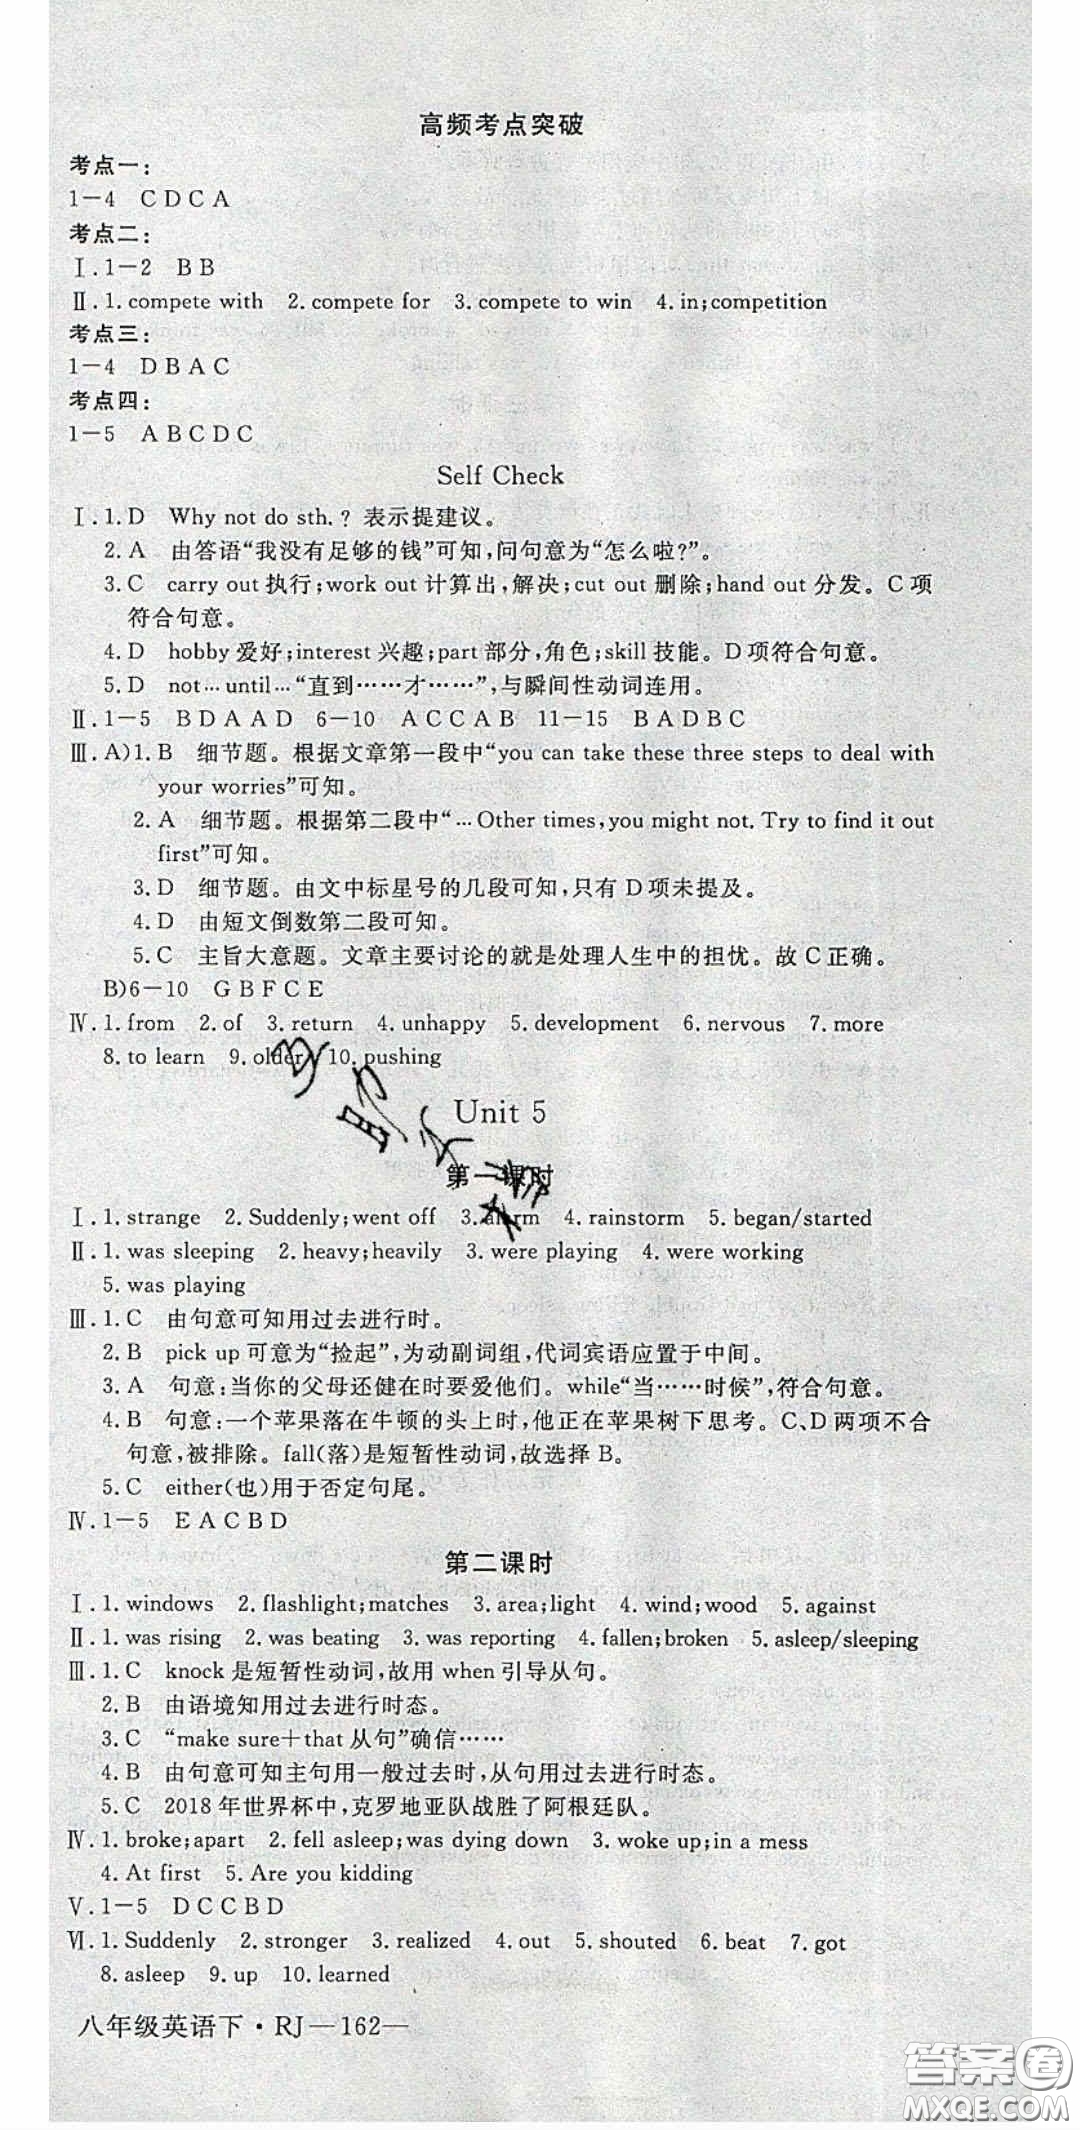 高频考点突破
考点一：
1—4 C D C A
考点二：
Ⅰ.1—2 B B
Ⅱ.1.compete with 2.compete for 3.compete to win 4.in;competition
考点三：
1—4 D B A C
考点四：
1—5 A B C D C
Self Check
Ⅰ.1.D Why not do sth.? 表示提建议。
2.A 由答语“我没有足够的钱”可知,问句意为“怎么啦?”。
3.C carry out执行;work out计算出,解决;cut out删除;hand out分发。C项
符合句意。
4.D hobby爱好;interest兴趣;part部分,角色;skill技能。D项符合句意。
5.D not…until…“直到……才……”,与瞬间性动词连用。
Ⅱ.1—5 B D A A D 6—10 A C C A B 11—15 B A D B C
Ⅲ.A)1.B 细节题。根据文章第一段中“you can take these three steps to deal with
your worries”可知。
2.A 细节题。根据第二段中“…Other times,you might not. Try to find it out
first”可知。
3.D 细节题。由文中标星号的几段可知,只有D项未提及。
4.D 由短文倒数第二段可知。
5.C 主旨大意题。文章主要讨论的就是处理人生中的担忧。故C正确。
B)6—10 G B F C E
Ⅳ.1.from 2.of 3.return 4.unhappy 5.development 6.nervous 7.more
8.to learn 9.older 10.pushing
Unit 5
第一课时
Ⅰ.1.strange 2.Suddenly;went off 3.alarm 4.rainstorm 5.began/started
Ⅱ.1.was sleeping 2.heavy;heavily 3.were playing 4.were working
5.was playing
Ⅲ.1.C 由句意可知用过去进行时。
2.B pick up可意为“捡起”,为动副词组,代词宾语应置于中间。
3.A 句意:当你的父母还健在时要爱他们。while“当……时候”,符合句意。
4.B 句意:一个苹果落在牛顿的头上时,他正在苹果树下思考。C、D两项不合
句意,被排除。fall(落)是短暂性动词,故选择B。
5.C either(也)用于否定句尾。
Ⅳ.1—5 E A C B D
第二课时
Ⅰ.1.windows 2.flashlight;matches 3.area;light 4.wind;wood 5.against
Ⅱ.1.was rising 2.was beating 3.was reporting 4.fallen;broken 5.asleep/sleeping
Ⅲ.1.C knock是短暂性动词,故用when引导从句。
2.B 由语境知用过去进行时态。
3.C “make sure+that从句”确信……
4.B 由句意可知主句用一般过去时,从句用过去进行时态。
5.C 2018年世界杯中,克罗地亚队战胜了阿根廷队。
Ⅳ.1.broke;apart 2.fell asleep;was dying down 3.woke up;in a mess
4.At first 5.Are you kidding
Ⅴ.1—5 D C C B D
Ⅵ.1.Suddenly 2.stronger 3.realized 4.out 5.shouted 6.beat 7.got
8.asleep 9.up 10.learned
八年级英语下·RJ—162—
答案圈
MXQE.COM